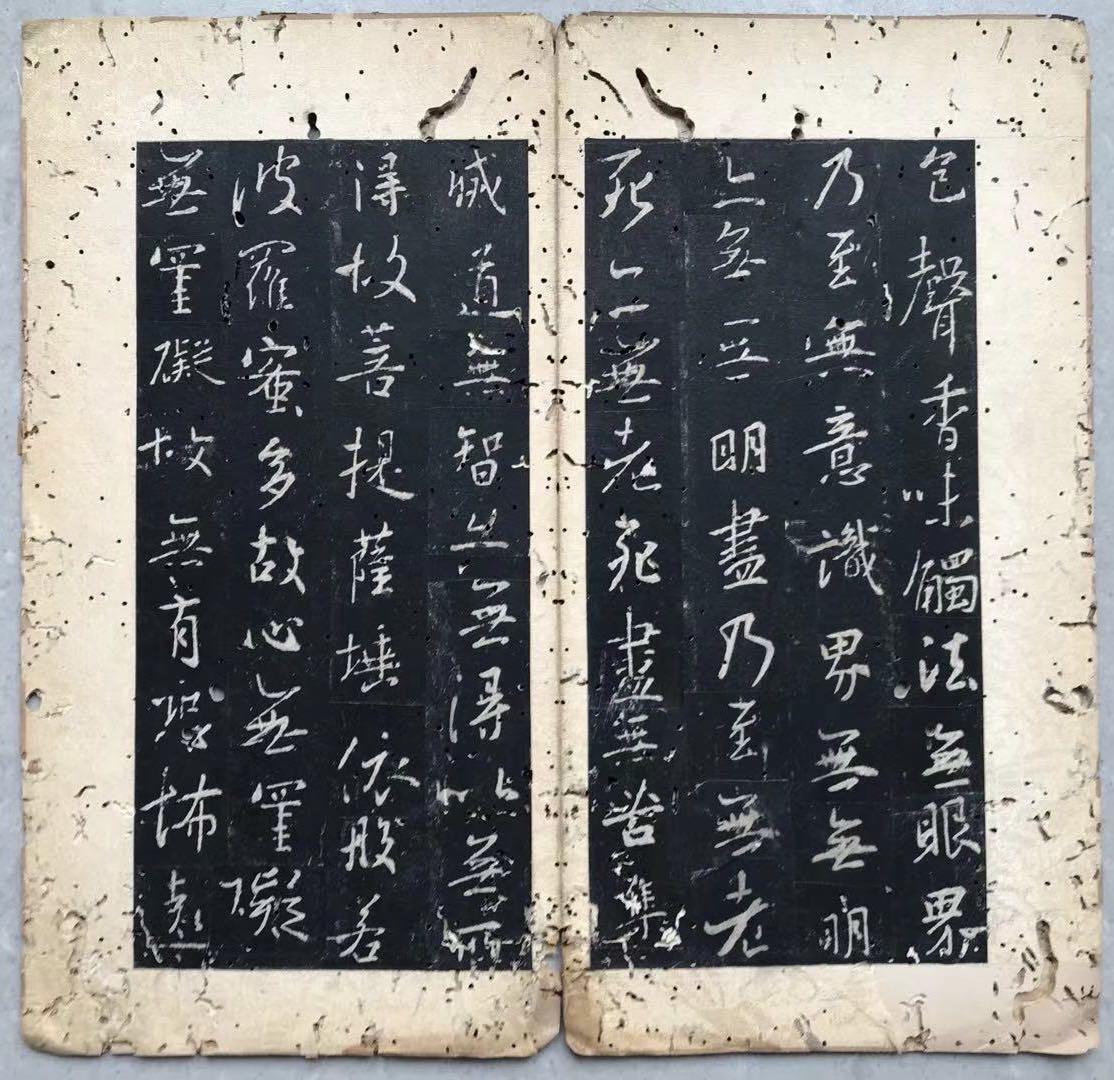 色聲香味觸法無眼界
乃至無意識界無無明
亦無無明盡乃至無老
死亦無老死盡無苦集
滅道無智亦無得以無所
得故菩提薩埵依般若
波羅蜜多故心無罣礙
無罣礙故無有恐怖遠